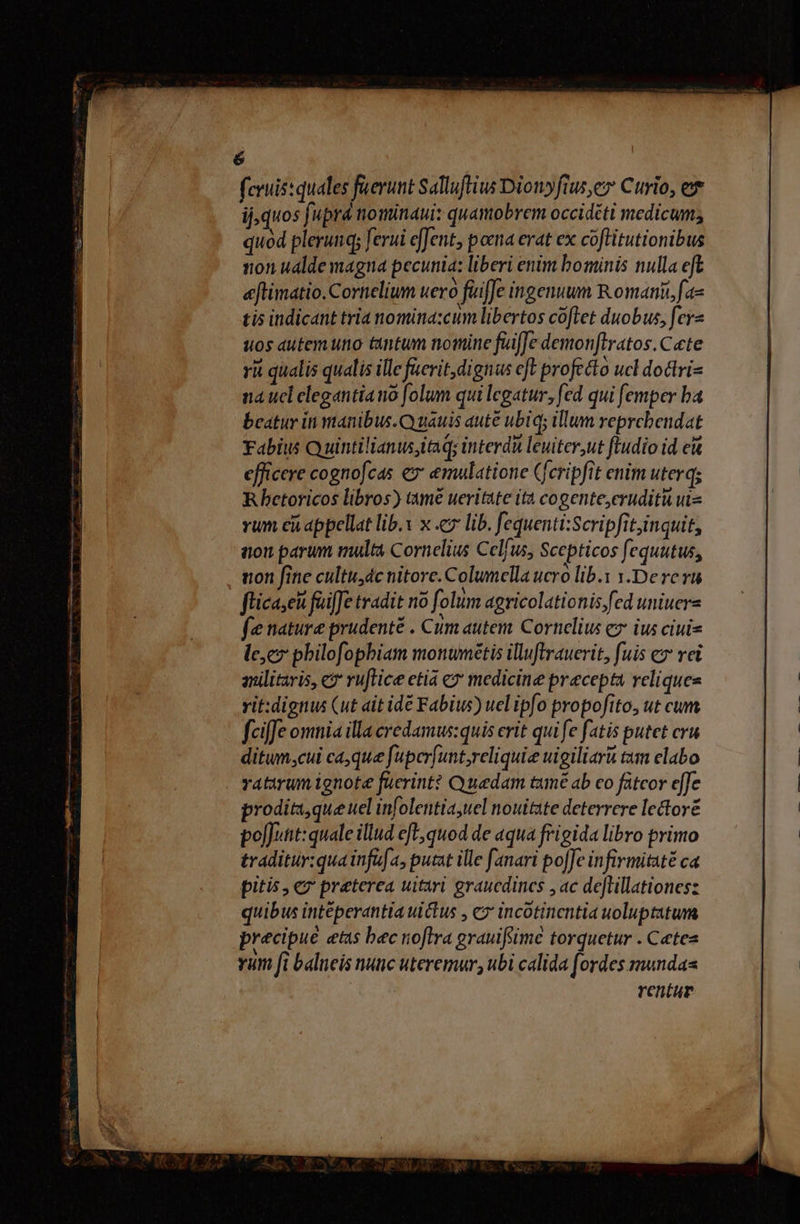 6
ſeruis:quales fuerunt Salluſtius Dionyſius,& Curio, &
ij,quos ſuprà nominaui: quamobrem occidēti medicum,
quòd plerunq; ſerui eſſent, pœna erat ex cōſtitutionibus
non ualde magna pecunia: liberi enim hominis nulla eſt
æſtimatio.Cornelium uerò fuiſſe ingenuum Romanū,ſa=
tis indicant tria nomina:cùm libertos cōſtet duobus, ſer=
uos autem uno tantum nomine fuiſſe demonſtratos.Cæte
rū qualis qualis ille fuerit,dignus eſt profectò uel doctri=
na uel elegantia nō ſolum qui legatur, ſed qui ſemper ha
beatur in manibus.Quāuis autē ubiq; illum reprehendat
Fabius Quintilianus,itaq; interdū leuiter,ut ſtudio id eū
efficere cognoſcas & æmulatione (ſcripſit enim uterq;
Rhetoricos libros) tamē ueritate ita cogente,eruditū ui=
rum eū appellat lib.1 x .& lib. ſequenti:Scripſit,inquit,
non parum multa Cornelius Celſus, Scepticos ſequutus,
non ſine cultu,ac nitore.Columella uerò lib.1 1.De re ru
ſtica,eū fuiſſe tradit nō ſolùm agricolationis,ſed uniuer=
ſæ naturæ prudentē . Cùm autem Cornelius & ius ciui=
le,& philoſophiam monumētis illuſtrauerit, ſuis & rei
militaris, & ruſticæ etiā & medicinæ præcepta relique=
rit:dignus (ut ait idē Fabius) uel ipſo propoſito, ut eum
ſciſſe omnia illa credamus:quis erit qui ſe ſatis putet eru
ditum,cui ea,quæ ſuperſunt,reliquiæ uigiliarū tam elabo
ratarum ignotæ fuerint? Quædam tamē ab eo fateor eſſe
prodita,quæ uel inſolentia,uel nouitate deterrere lectorē
poſſunt:quale illud eſt,quod de aqua frigida libro primo
traditur:qua infuſa, putat ille ſanari poſſe infirmitatē ca
pitis , & præterea uitari grauedines , ac deſtillationes:
quibus intēperantia uictus , & incōtinentia uoluptatum
præcipuè ætas hæc noſtra grauiſsimè torquetur . Cæte=
rùm ſi balneis nunc uteremur, ubi calida ſordes munda=
rentur